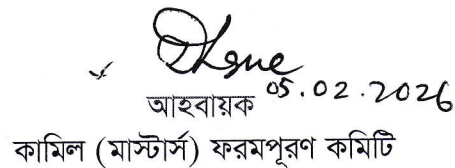 05.02.2026
আহবায়ক
কামিল (মাস্টার্স) ফরমপূরণ কমিটি